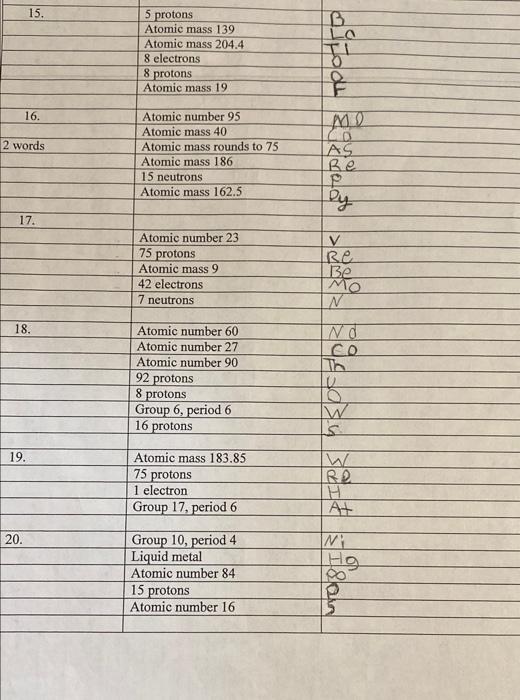 15. 5 protons B
Atomic mass 139 La
Atomic mass 204.4 Tl
8 electrons O
8 protons O
Atomic mass 19 F
16. Atomic number 95
Atomic mass 40 Ca
2 words Atomic mass rounds to 75 AS
Atomic mass 186 Re
15 neutrons P
Atomic mass 162.5 Dy
17.
Atomic number 23 V
75 protons Re
Atomic mass 9 Be
42 electrons Mo
7 neutrons N
18. Atomic number 60 Nd
Atomic number 27 CO
Atomic number 90 Th
92 protons U
8 protons O
Group 6, period 6 W
16 protons S
19. Atomic mass 183.85 W
75 protons Re
1 electron H
Group 17, period 6 At
20. Group 10, period 4 Ni
Liquid metal Hg
Atomic number 84
15 protons P
Atomic number 16 S